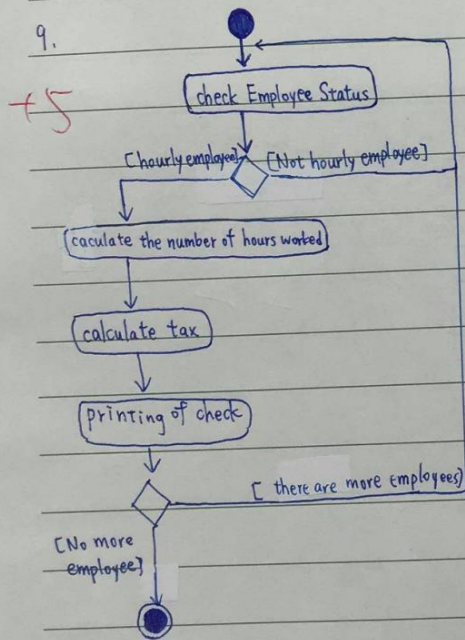 9.
+5
check Employee Status
[hourly employee] [Not hourly employee]
caculate the number of hours worked
calculate tax
printing of check
[ there are more employees)
[No more
employee]